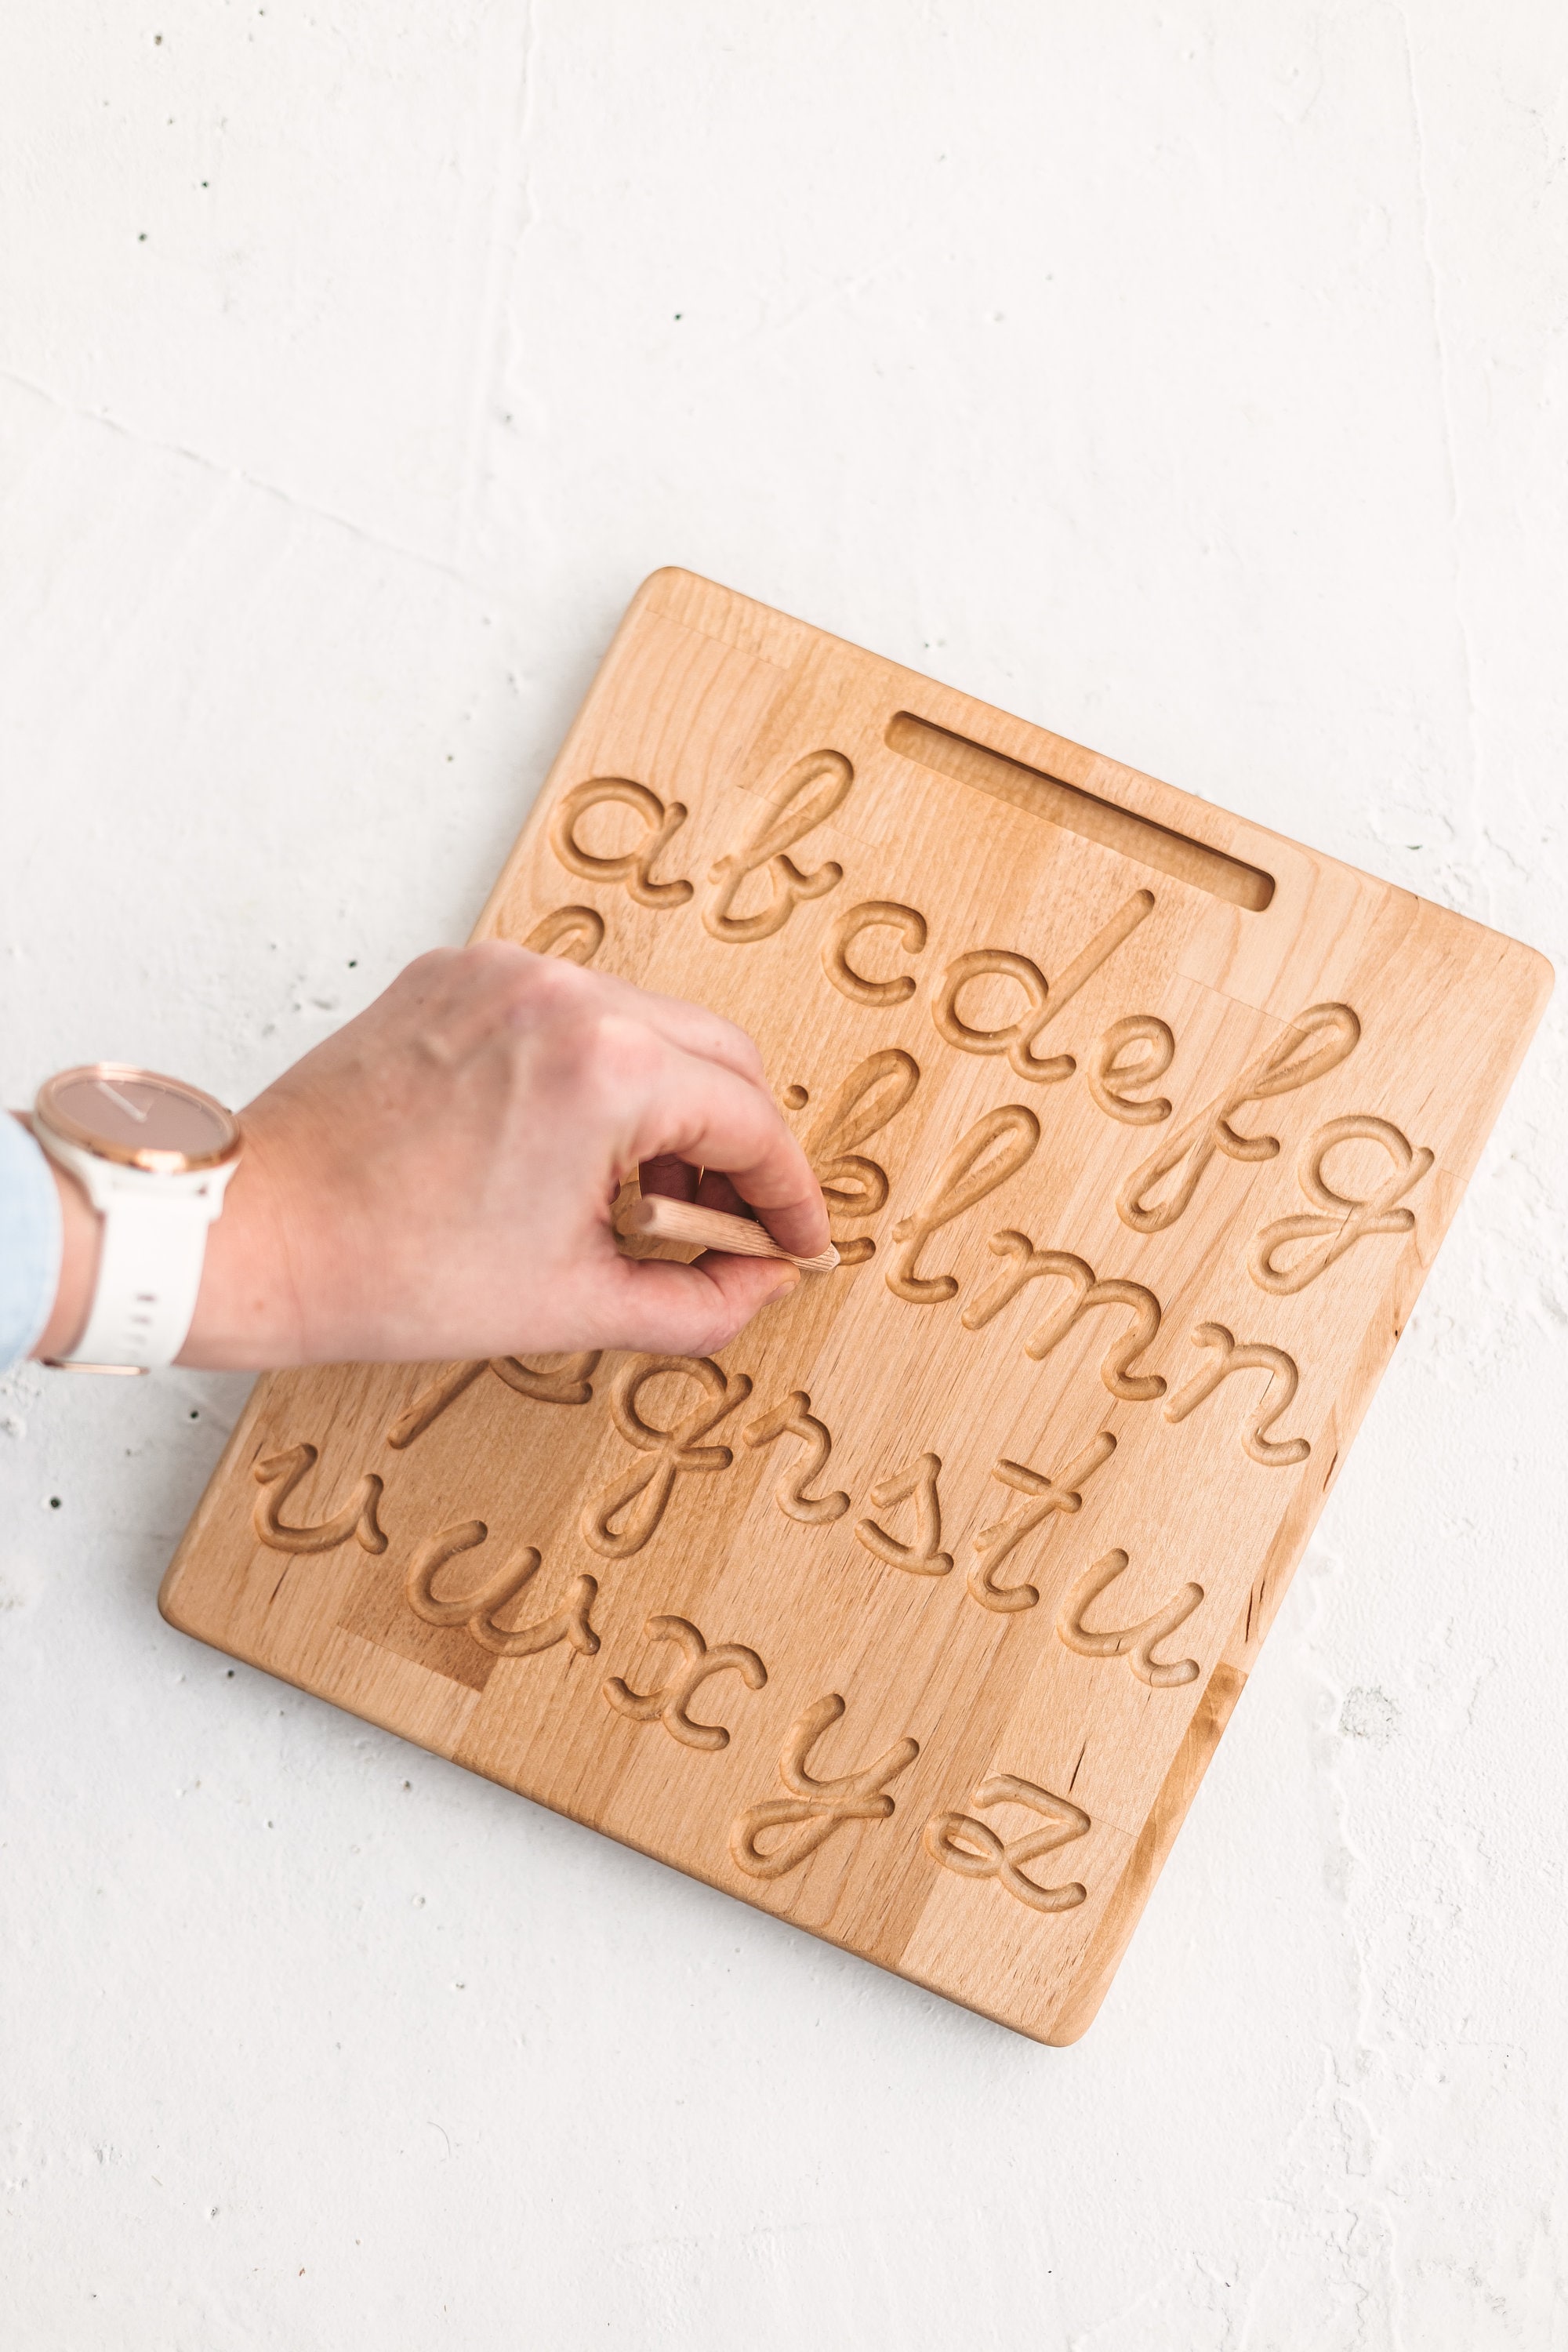 a b c d e f g
h k l m n
p q r s t u
v w x y z